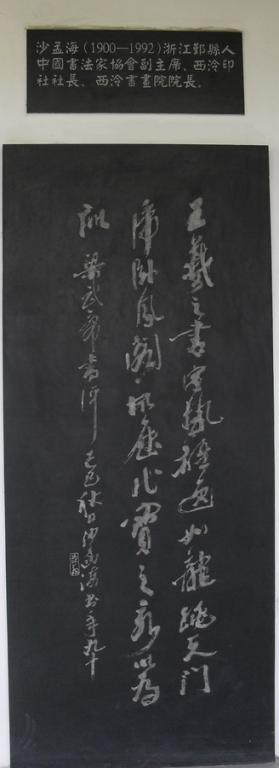 沙孟海(1900—1992)浙江鄞縣人
中國書法家協會副主席、西泠印
社社長、西泠書畫院院長。
王羲之書字勢雄逸如龍跳天門
虎卧鳳閣故歷代寶之永以為
訓 梁武帝書評 己巳秋日沙孟海書年九十